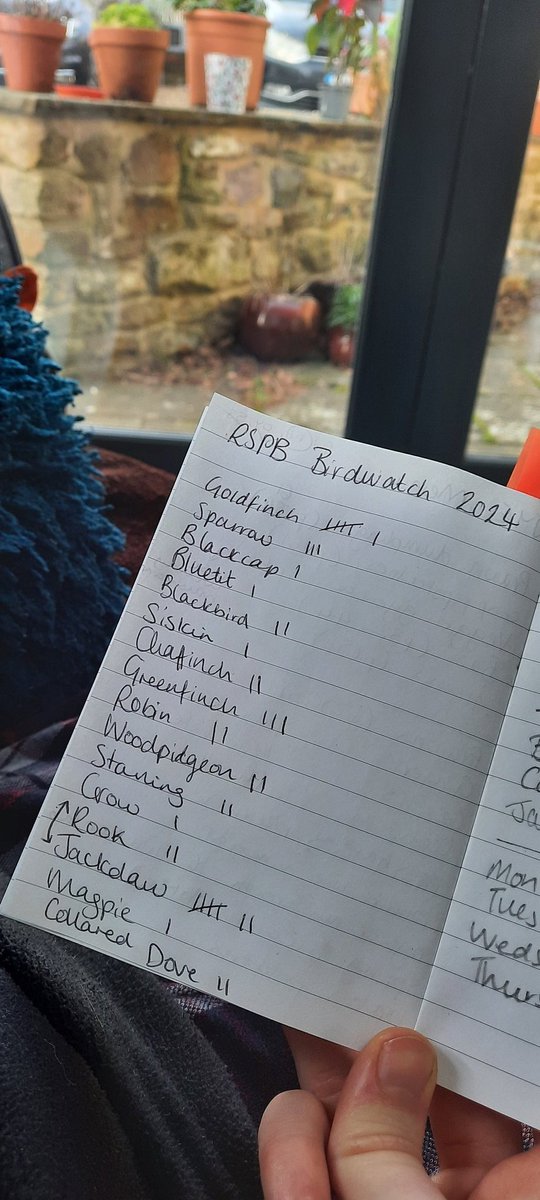 RSPB Birdwatch 2024
Goldfinch 𝍸 |
Sparrow |||
Blackcap |
Bluetit |
Blackbird ||
Siskin |
Chafinch ||
Greenfinch |||
Robin ||
Woodpidgeon ||
Starling ||
Crow |
Rook ||
Jackdaw 𝍸 ||
Magpie |
Collared Dove ||
Mon
Tues
Weds
Thurs